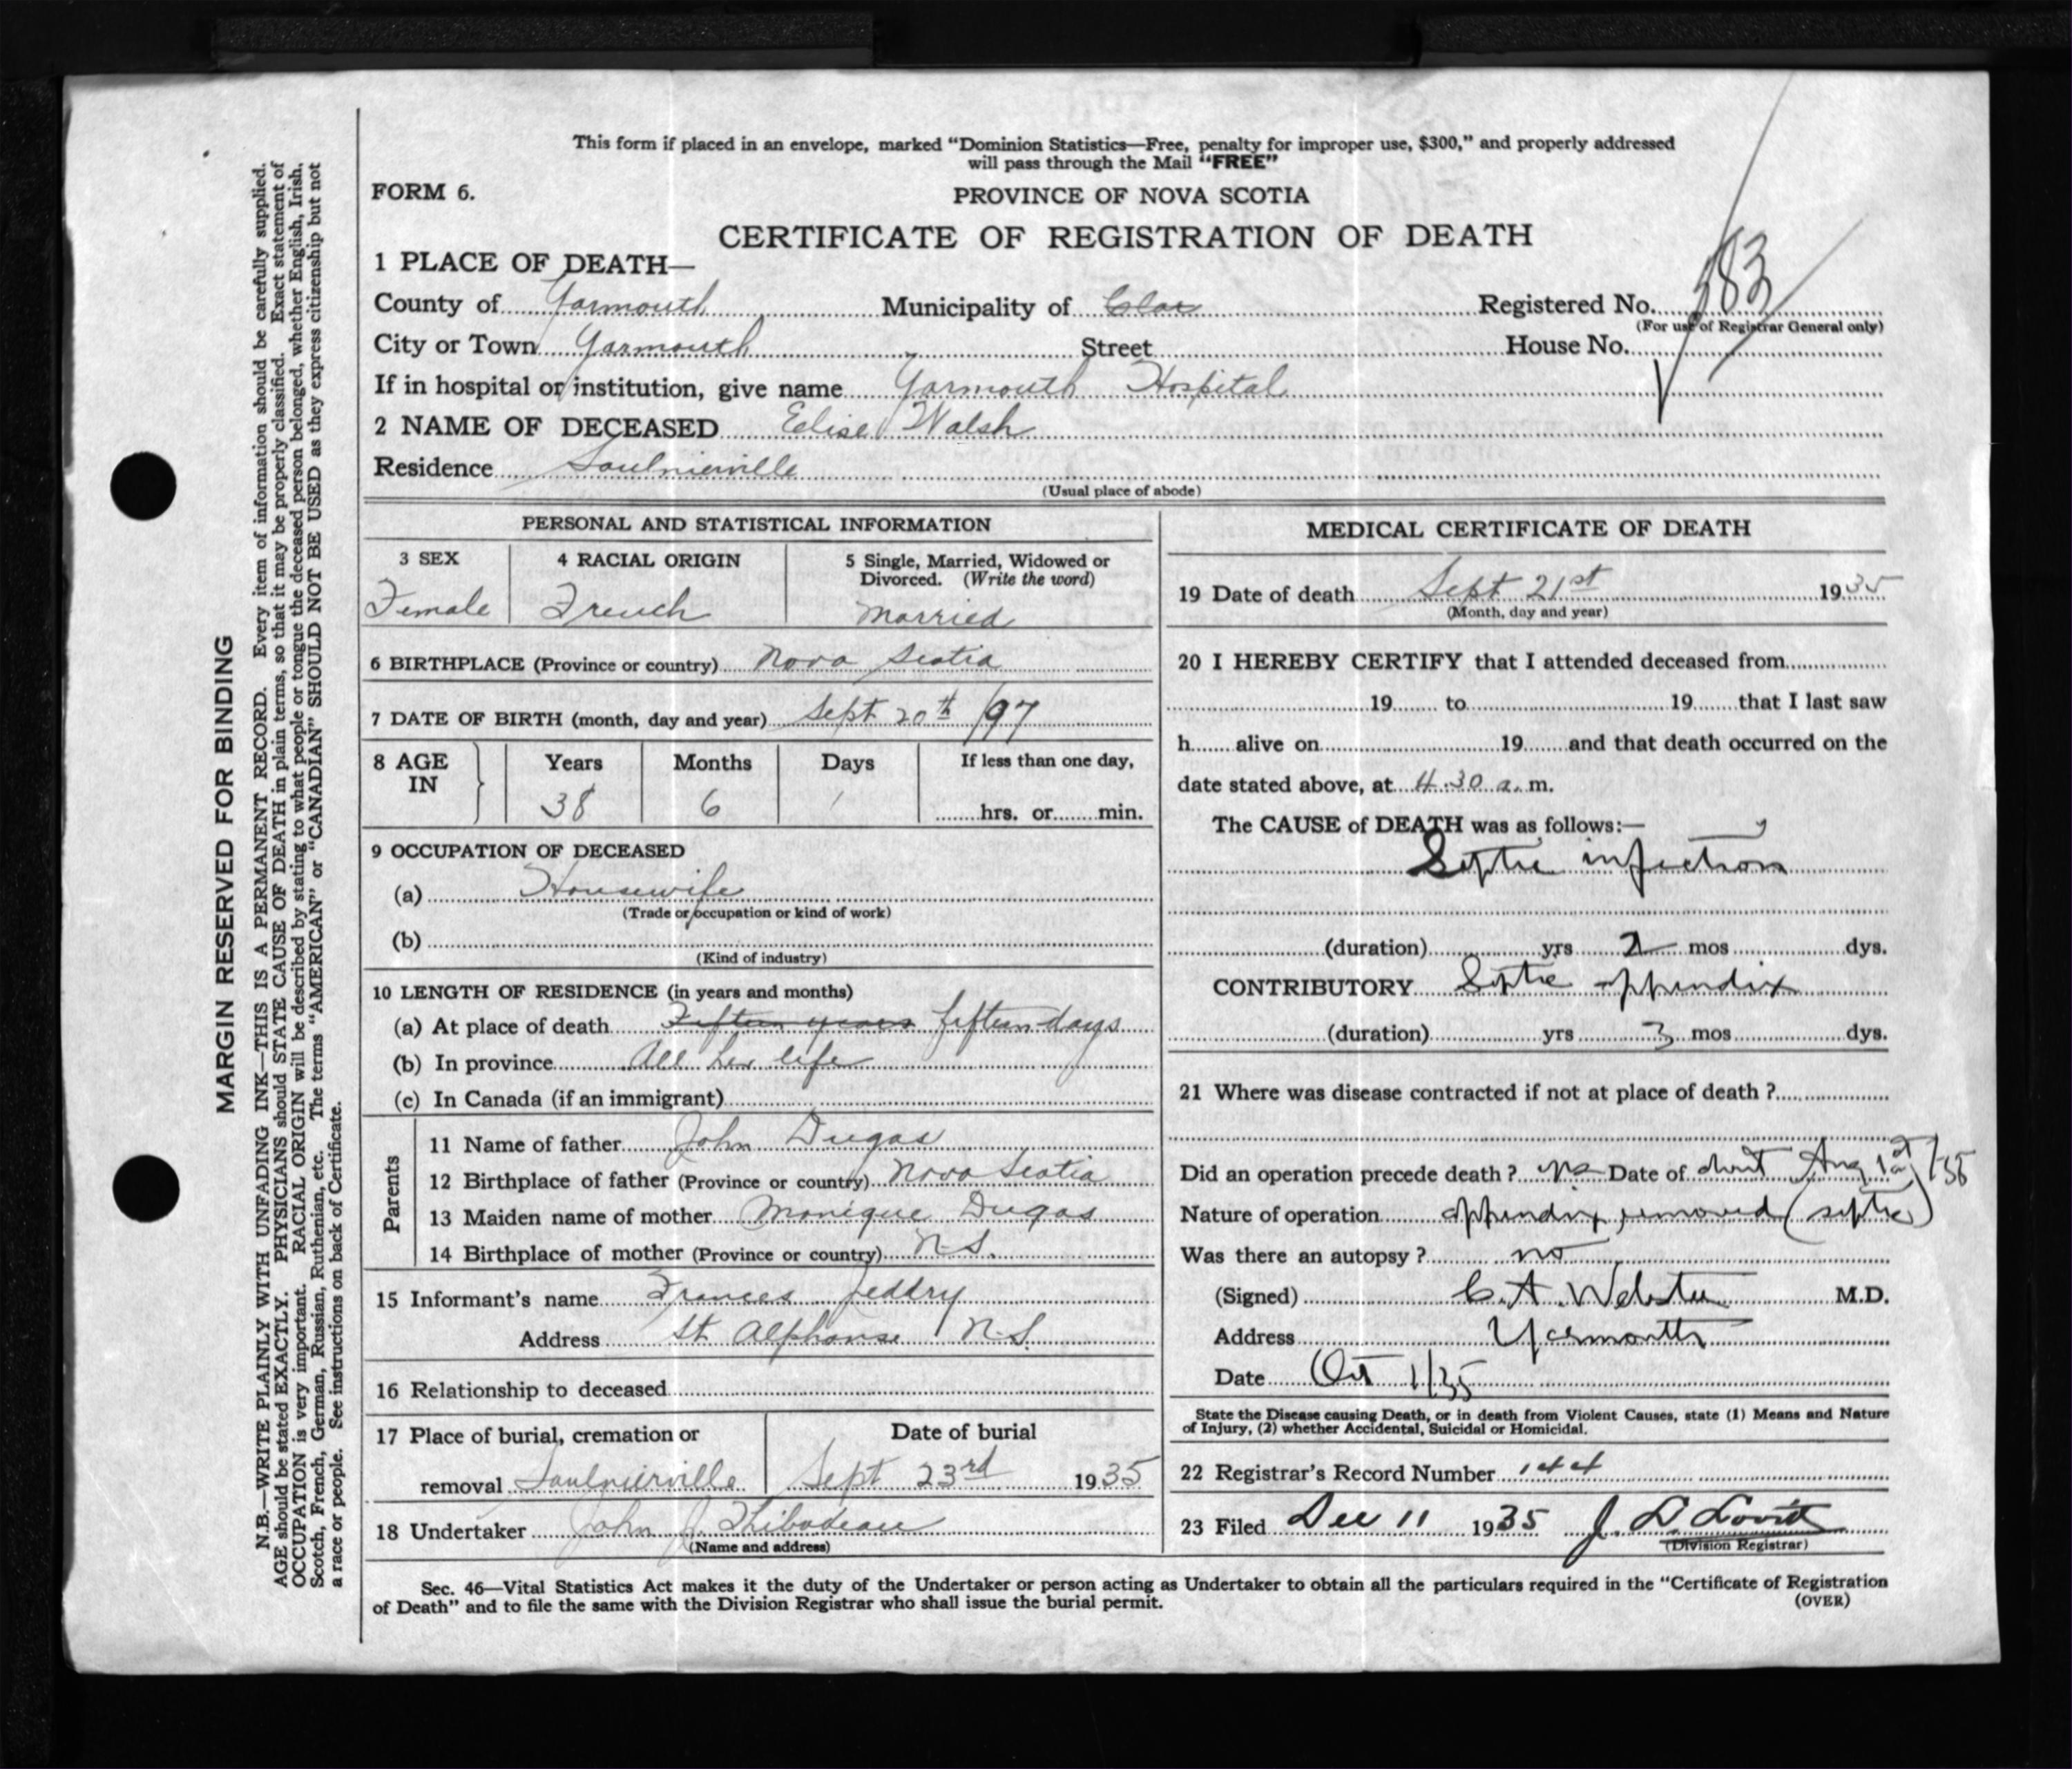 This form if placed in an envelope, marked "Dominion Statistics—Free, penalty for improper use, $300," and properly addressed
will pass through the Mail "FREE"
FORM 6.
PROVINCE OF NOVA SCOTIA
CERTIFICATE OF REGISTRATION OF DEATH
1 PLACE OF DEATH—
County of Yarmouth Municipality of Clare Registered No. 583
(For use of Registrar General only)
City or Town Yarmouth Street House No.
If in hospital or institution, give name Yarmouth Hospital
2 NAME OF DECEASED Elise Walsh
Residence Saulnierville
(Usual place of abode)
PERSONAL AND STATISTICAL INFORMATION
3 SEX 4 RACIAL ORIGIN 5 Single, Married, Widowed or
Divorced. (Write the word)
Female French Married
6 BIRTHPLACE (Province or country) Nova Scotia
7 DATE OF BIRTH (month, day and year) Sept 20th /97
8 AGE IN Years Months Days If less than one day,
38 6 1 hrs. or min.
9 OCCUPATION OF DECEASED
(a) Housewife
(Trade or occupation or kind of work)
(b)
(Kind of industry)
10 LENGTH OF RESIDENCE (in years and months)
(a) At place of death Fifteen years fifteen days
(b) In province All her life
(c) In Canada (if an immigrant)
Parents
11 Name of father John Dugas
12 Birthplace of father (Province or country) Nova Scotia
13 Maiden name of mother Monique Dugas
14 Birthplace of mother (Province or country) N.S.
15 Informant's name Frances Jeddry
Address St. Alphonse N.S.
16 Relationship to deceased
17 Place of burial, cremation or Date of burial
removal Saulnierville Sept 23rd 1935
18 Undertaker John J. Thibodeau
(Name and address)
MEDICAL CERTIFICATE OF DEATH
19 Date of death Sept 21st 1935
(Month, day and year)
20 I HEREBY CERTIFY that I attended deceased from
19 to 19 that I last saw
h alive on 19 and that death occurred on the
date stated above, at 4.30 a. m.
The CAUSE of DEATH was as follows:—
Septic infection
(duration) yrs 2 mos dys.
CONTRIBUTORY Septic appendix
(duration) yrs 3 mos dys.
21 Where was disease contracted if not at place of death ?
Did an operation precede death ? Date of about Aug 1st /35
Nature of operation appendix removed (septic)
Was there an autopsy ? no
(Signed) C. A. Webster M.D.
Address Yarmouth
Date Oct 1/35
State the Disease causing Death, or in death from Violent Causes, state (1) Means and Nature
of Injury, (2) whether Accidental, Suicidal or Homicidal.
22 Registrar's Record Number 144
23 Filed Dec 11 1935 J. D. Lovitt
(Division Registrar)
Sec. 46—Vital Statistics Act makes it the duty of the Undertaker or person acting as Undertaker to obtain all the particulars required in the "Certificate of Registration
of Death" and to file the same with the Division Registrar who shall issue the burial permit.
(OVER)
MARGIN RESERVED FOR BINDING
N.B.—WRITE PLAINLY WITH UNFADING INK—THIS IS A PERMANENT RECORD. Every item of information should be carefully supplied.
AGE should be stated EXACTLY. PHYSICIANS should STATE CAUSE OF DEATH in plain terms, so that it may be properly classified. Exact statement of
OCCUPATION is very important. RACIAL ORIGIN will be described by stating to what people or tongue the deceased person belonged, whether English, Irish,
Scotch, French, German, Russian, Ruthenian, etc. The terms "AMERICAN" or "CANADIAN" SHOULD NOT BE USED as they express citizenship but not
a race or people. See instructions on back of Certificate.